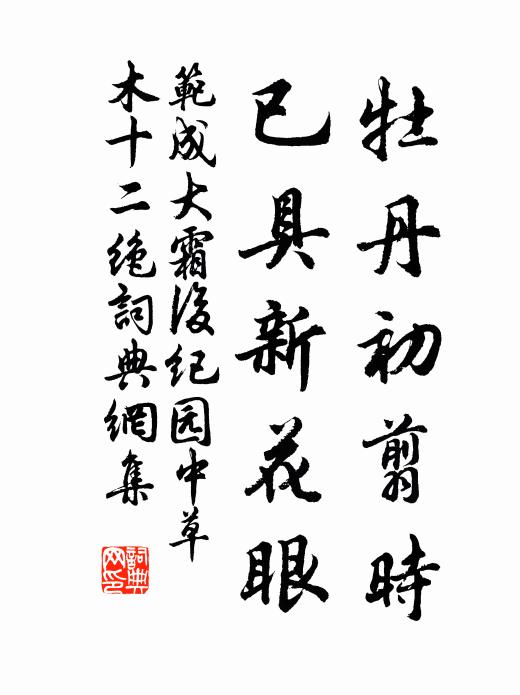 牡丹初翦時
已具新花眼
範成大霜後纪园中草
木十二絶詞典網集
詞典
网印